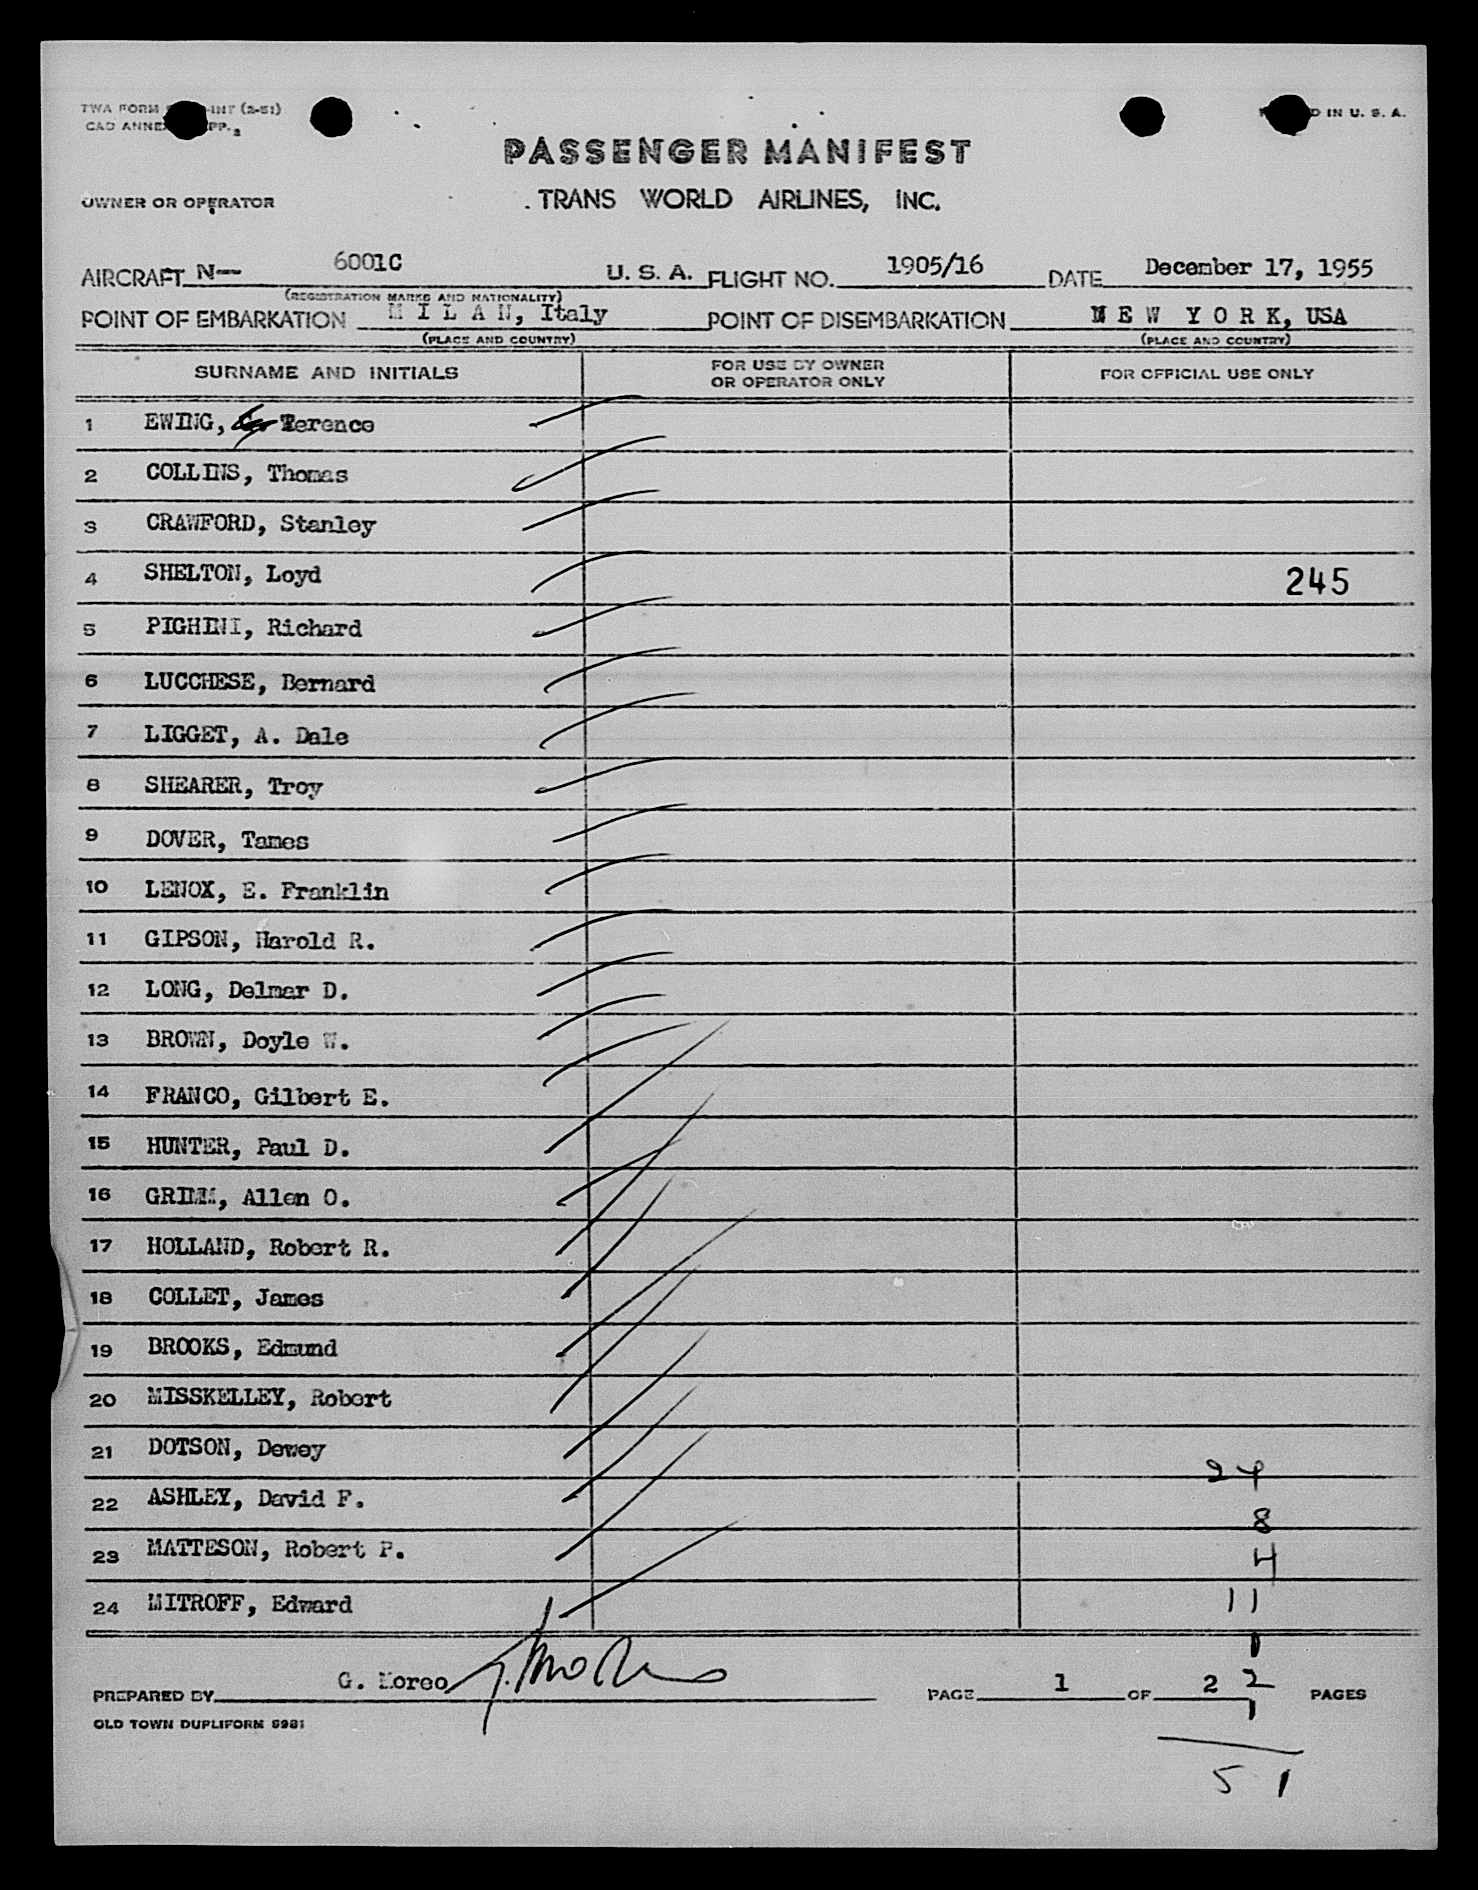 TWA FORM -INT (2-51)
CAO ANNEX PP. 2
D IN U. S. A.
PASSENGER MANIFEST
OWNER OR OPERATOR TRANS WORLD AIRLINES, INC.
AIRCRAFT N-- 6001C U. S. A. FLIGHT NO. 1905/16 DATE December 17, 1955
(REGISTRATION MARKS AND NATIONALITY)
POINT OF EMBARKATION M I L A N, Italy POINT OF DISEMBARKATION N E W Y O R K, USA
(PLACE AND COUNTRY) (PLACE AND COUNTRY)
SURNAME AND INITIALS FOR USE BY OWNER OR OPERATOR ONLY FOR OFFICIAL USE ONLY
1 EWING, Terence
2 COLLINS, Thomas
3 CRAWFORD, Stanley
4 SHELTON, Loyd 245
5 PIGHINI, Richard
6 LUCCHESE, Bernard
7 LIGGET, A. Dale
8 SHEARER, Troy
9 DOVER, Tames
10 LENOX, E. Franklin
11 GIPSON, Harold R.
12 LONG, Delmar D.
13 BROWN, Doyle W.
14 FRANCO, Gilbert E.
15 HUNTER, Paul D.
16 GRIMM, Allen O.
17 HOLLAND, Robert R.
18 COLLET, James
19 BROOKS, Edmund
20 MISSKELLEY, Robert
21 DOTSON, Dewey
24
22 ASHLEY, David F.
8
23 MATTESON, Robert P. 4
24 MITROFF, Edward 11
1
PREPARED BY G. Moreo PAGE 1 OF 2 2 PAGES
1
OLD TOWN DUPLIFORM 9981
51